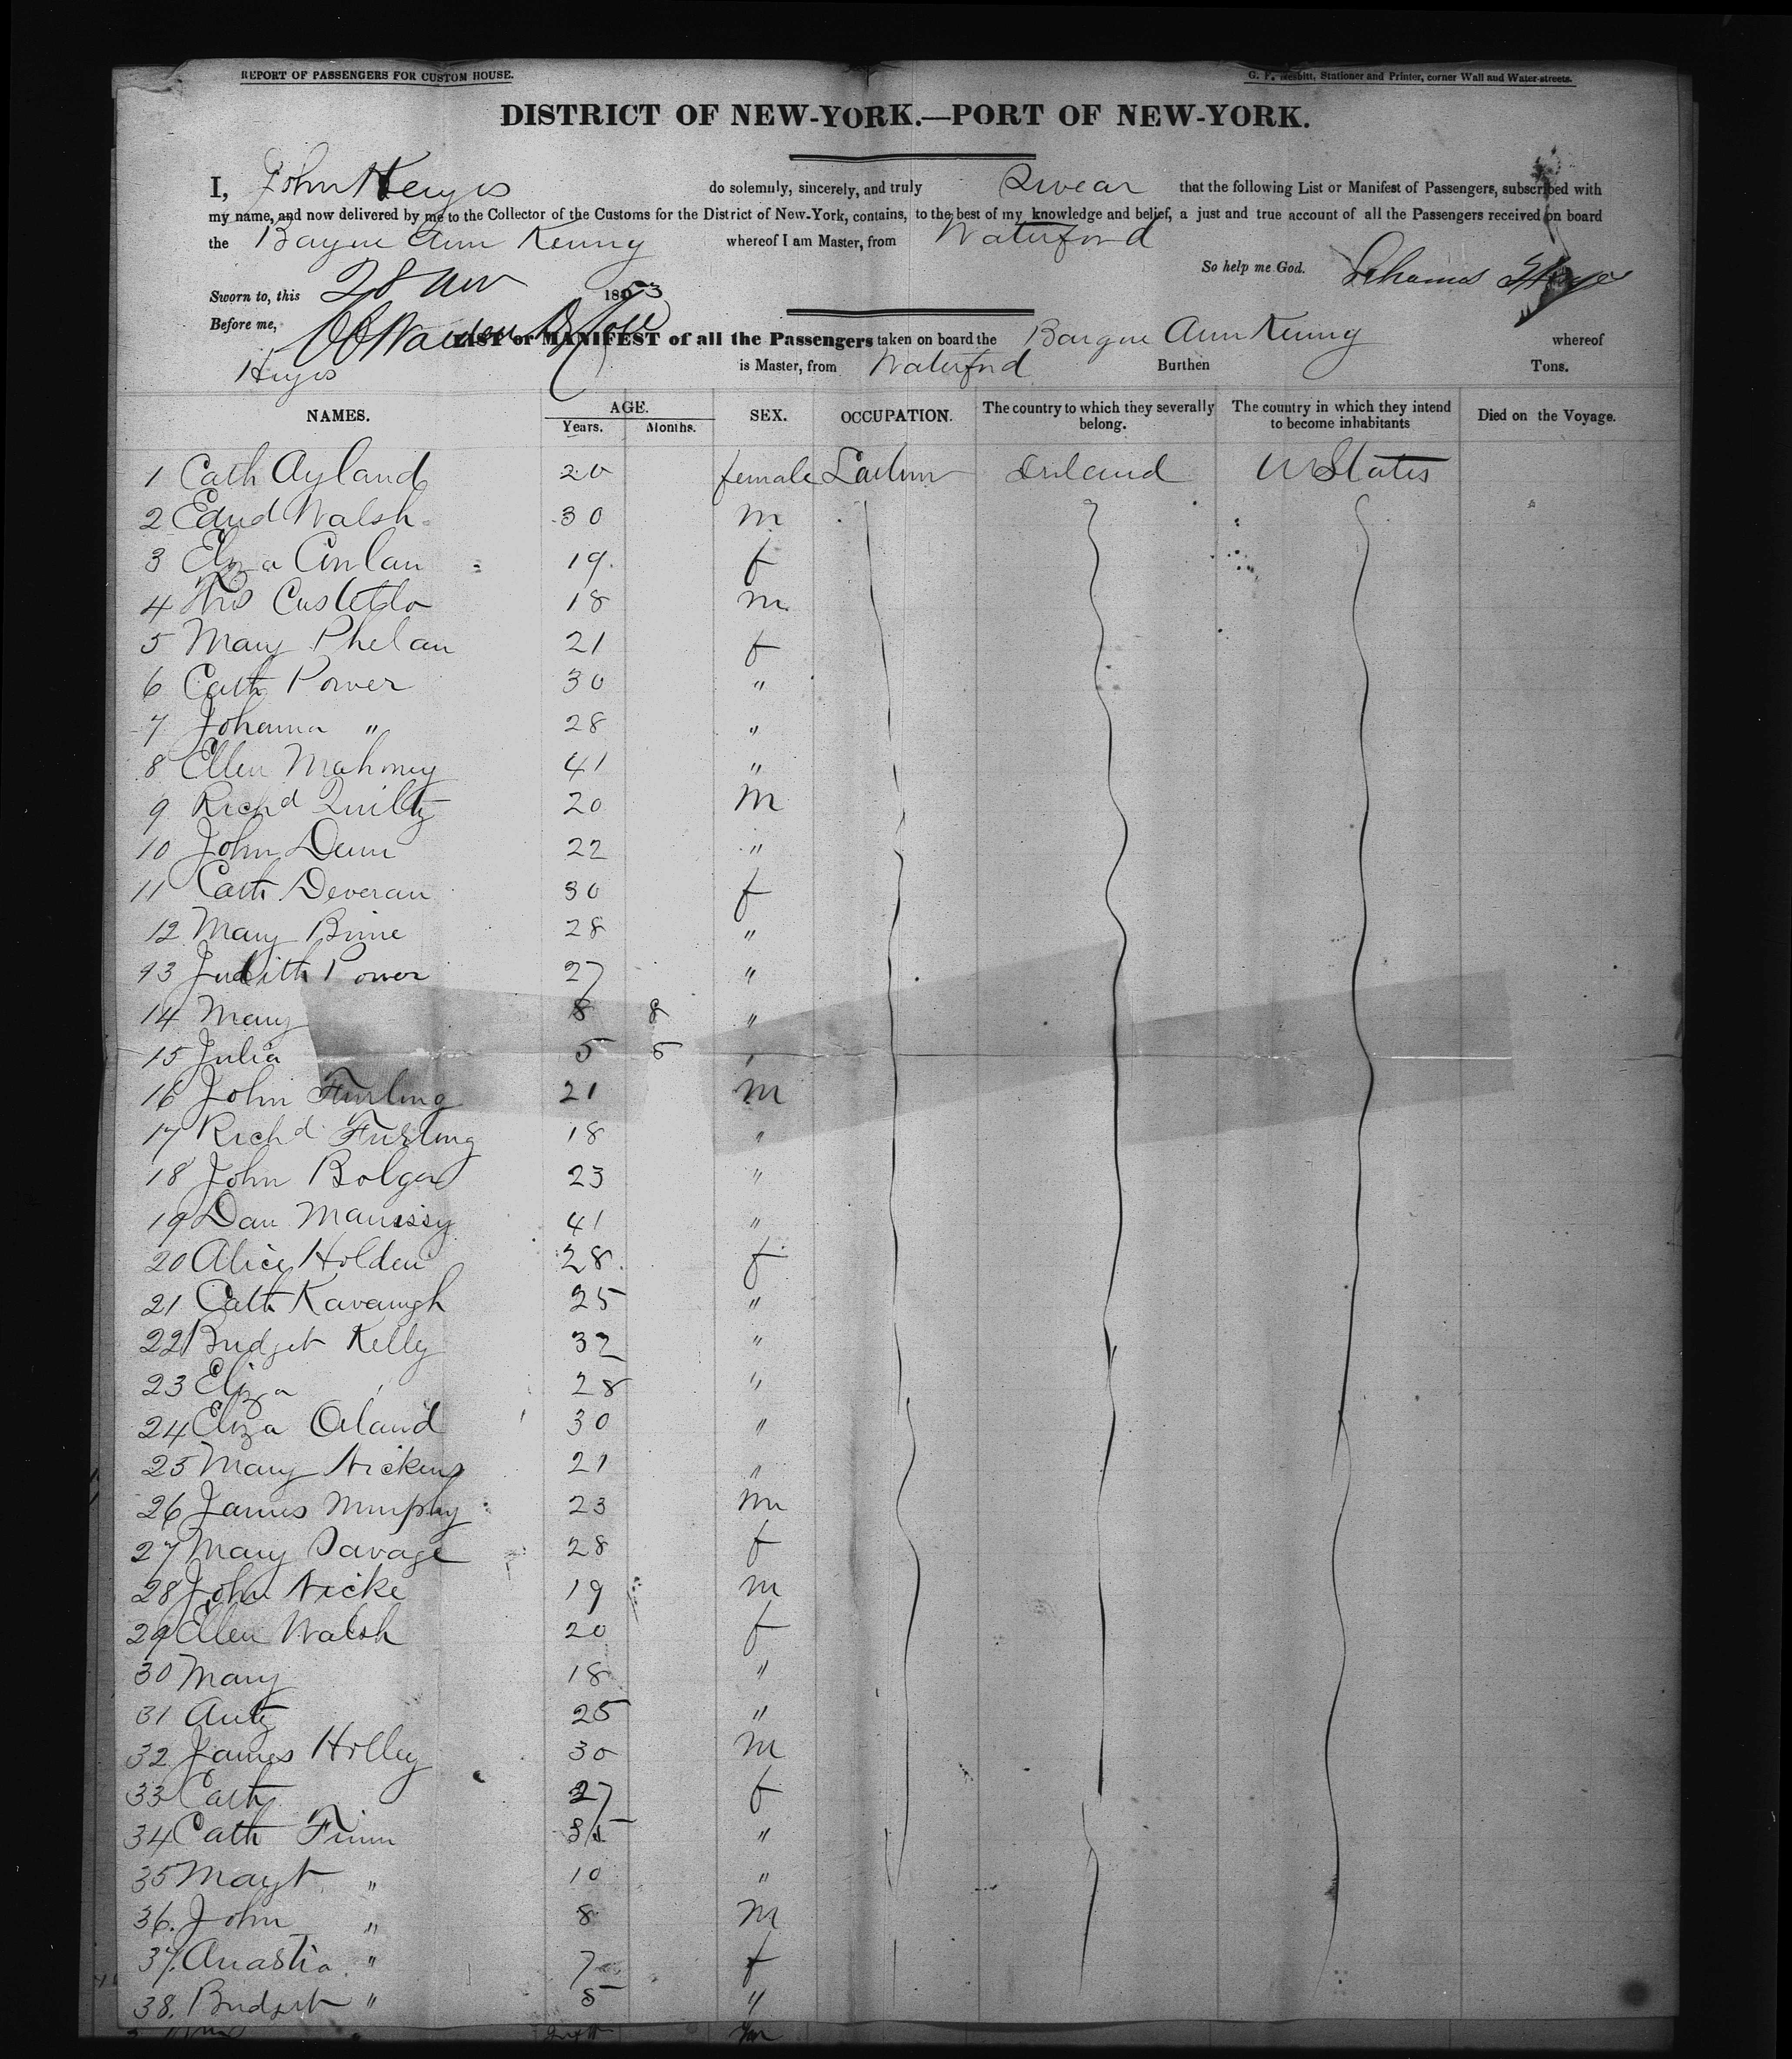 REPORT OF PASSENGERS FOR CUSTOM HOUSE.
G. F. Nesbitt, Stationer and Printer, corner Wall and Water-streets.
DISTRICT OF NEW-YORK.—PORT OF NEW-YORK.
I, John Heyes do solemnly, sincerely, and truly Swear that the following List or Manifest of Passengers, subscribed with
my name, and now delivered by me to the Collector of the Customs for the District of New-York, contains, to the best of my knowledge and belief, a just and true account of all the Passengers received on board
the Barque Ann Kenny whereof I am Master, from Waterford
So help me God.
Sworn to, this 28 Nov 1853
Before me,
LIST or MANIFEST of all the Passengers taken on board the Barque Ann Kenny whereof
Heyes is Master, from Waterford Burthen Tons.
NAMES. AGE. Years. Months. SEX. OCCUPATION. The country to which they severally belong. The country in which they intend to become inhabitants Died on the Voyage.
1 Cath Ayland 20 female Ireland U States
2 Edwd Walsh 30 m
3 Eliza Conlan 19 f
4 Costello 18 m
5 Mary Phelan 21 f
6 Cath Power 30 "
7 Johanna " 28 "
8 Ellen Mahony 41 "
9 Richd Quilty 20 m
10 John Dunn 22 "
11 Cath Deveran 30 f
12 Mary Birne 28 "
13 Judith Power 27 "
14 Mary 8 8 "
15 Julia 5 5 "
16 John Furlong 21 m
17 Richd Furlong 18 "
18 John Bolger 23 "
19 Dan 41 "
20 Alice Holden 28 f
21 Cath Kavanagh 25 "
22 Bridget Kelly 32 "
23 Eliza 28 "
24 Eliza Orland 30 "
25 Mary Hickens 21 "
26 James Murphy 23 m
27 Mary Savage 28 f
28 John Hicke 19 m
29 Ellen Walsh 20 f
30 Mary 18 "
31 Anty 25 "
32 James Holley 30 m
33 Cath 27 f
34 Cath Finn 35 "
35 Magt " 10 "
36. John " 8 m
37. Anastia " 7 f
38. Bridget " 5 "